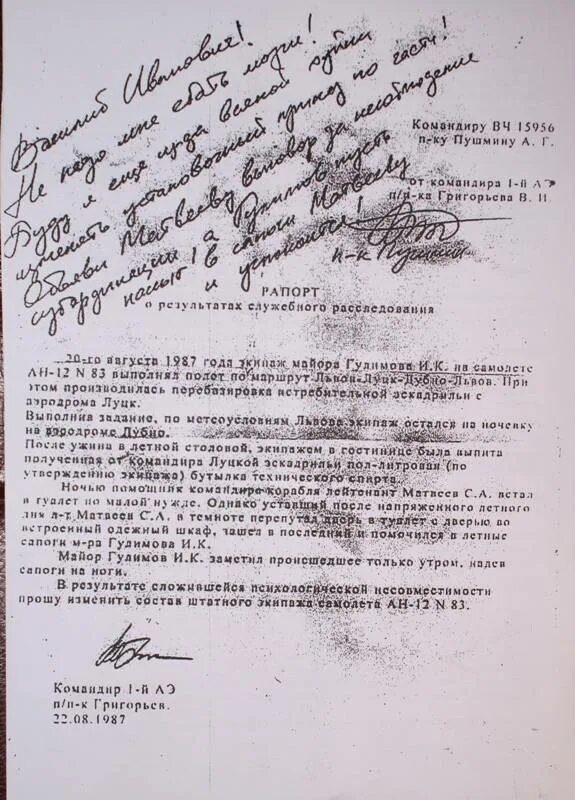 Василий Иванович!
Не надо мне ебать мозги!
Буду я ещё из-за всякой хуйни
изменять установочный приказ по части!
Объяви Матвееву выговор за несоблюдение
субординации, а Гулимов пусть
нассыт в сапоги Матвееву
и успокоится!
п-к Пушмин
Командиру ВЧ 15956
п-ку Пушмину А. Г.
от командира 1-й АЭ
п/п-ка Григорьева В. И.
РАПОРТ
о результатах служебного расследования
20-го августа 1987 года экипаж майора Гулимова И.К. на самолете
АН-12 N 83 выполнял полет по маршрут Львов-Луцк-Дубно-Львов. При
этом производилась перебазировка истребительной эскадрильи с
аэродрома Луцк.
Выполнив задание, по метеоусловиям Львова экипаж остался на ночевку
на аэродроме Дубно.
После ужина в летной столовой, экипажем в гостинице была выпита
полученная от командира Луцкой эскадрильи пол-литровая (по
утверждению экипажа) бутылка технического спирта.
Ночью помощник командира корабля лейтенант Матвеев С.А. встал
в туалет по малой нужде. Однако уставший после напряженного летного
дня л-т Матвеев С.А. в темноте перепутал дверь в туалет с дверью во
встроенный одежный шкаф, зашел в последний и помочился в летные
сапоги м-ра Гулимова И.К.
Майор Гулимов И.К. заметил происшедшее только утром, надев
сапоги на ноги.
В результате сложившейся психологической несовместимости
прошу изменить состав штатного экипажа самолета АН-12 N 83.
Командир 1-й АЭ
п/п-к Григорьев.
22.08.1987